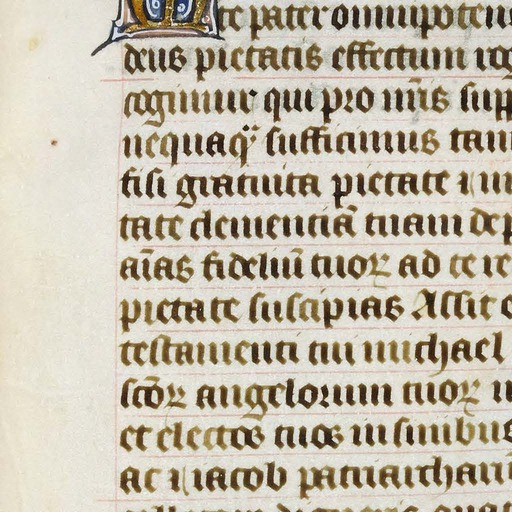 Te pater omnipotens
deus pietatis effectum rog
cogimur qui pro nr̄is supp
nequaqͣ sufficimus tam
fisi gratuita pietate ⁊ in
tate clementiā tuam dep
aīas fideliū tuoꝝ ad te re
pietate suscipias Assit
testamenti tui michael
scōꝝ angelorum tuoꝝ
et electos tuos in sinibus
ac ⁊ iacob patriarchar